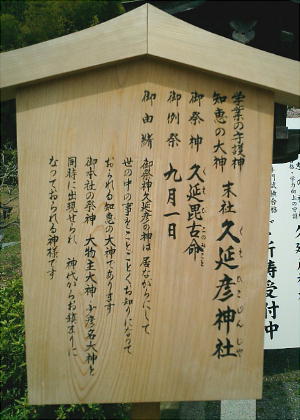 学業の守護神
知恵の大神
末社 久延彦神社
くえひこじんじゃ
御祭神 久延毘古命
くえひこのみこと
御例祭 九月一日
御由緒 御祭神久延彦の神は居ながらにして
世の中の事をことごとくお知りになって
おられる知恵の大神であります
御本社の祭神 大物主大神 少彦名大神と
同時に出現せられ 神代からお鎮まりに
なっておられる神様です
ご祈祷受付中